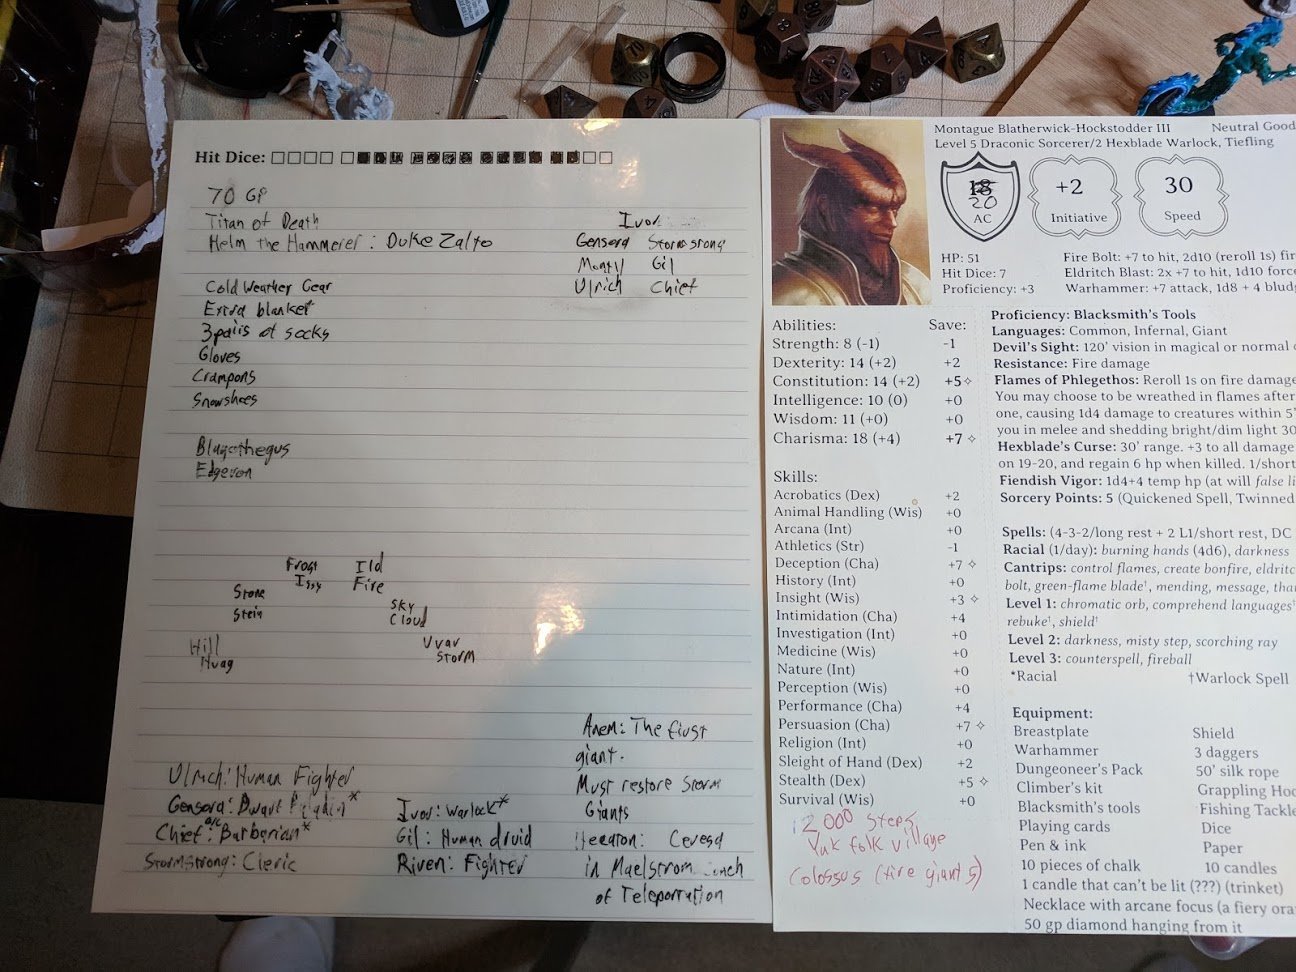 Hit Dice:
70 GP
Titan of Death
Helm the Hammerer: Duke Zalto
Ivor
Gensora Stormstrong
Monty Gil
Ulrich Chief
Cold Weather Gear
Extra blanket
3 pairs of socks
Gloves
Crampons
Snowshoes
Blagothegus
Edgeron
Frost Ild
Issy Fire
Stone Sky
Stein Cloud
Hill Uvar
Huag Storm
Anem: The first
giant.
Must restore Storm
Giants
Ulrich: Human Fighter
Gensora: Dwarf Paladin*
Chief: Barbarian*
Stormstrong: Cleric
Ivor: Warlock*
Gil: Human druid
Riven: Fighter
in Maelstrom
of Teleportation
Montague Blatherwick-Hockstodder III Neutral Good
Level 5 Draconic Sorcerer/2 Hexblade Warlock, Tiefling
20
AC
+2
Initiative
30
Speed
HP: 51
Hit Dice: 7
Proficiency: +3
Fire Bolt: +7 to hit, 2d10 (reroll 1s) fir
Eldritch Blast: 2x +7 to hit, 1d10 force
Warhammer: +7 attack, 1d8 + 4 bludg
Abilities: Save:
Strength: 8 (-1) -1
Dexterity: 14 (+2) +2
Constitution: 14 (+2) +5✧
Intelligence: 10 (0) +0
Wisdom: 11 (+0) +0
Charisma: 18 (+4) +7 ✧
Skills:
Acrobatics (Dex) +2
Animal Handling (Wis) +0
Arcana (Int) +0
Athletics (Str) -1
Deception (Cha) +7 ✧
History (Int) +0
Insight (Wis) +3 ✧
Intimidation (Cha) +4
Investigation (Int) +0
Medicine (Wis) +0
Nature (Int) +0
Perception (Wis) +0
Performance (Cha) +4
Persuasion (Cha) +7 ✧
Religion (Int) +0
Sleight of Hand (Dex) +2
Stealth (Dex) +5 ✧
Survival (Wis) +0
2000 steps
Yak folk village
Colossus (fire giants)
Proficiency: Blacksmith's Tools
Languages: Common, Infernal, Giant
Devil's Sight: 120' vision in magical or normal
Resistance: Fire damage
Flames of Phlegethos: Reroll 1s on fire damage
You may choose to be wreathed in flames after
one, causing 1d4 damage to creatures within 5'
you in melee and shedding bright/dim light 30
Hexblade's Curse: 30' range. +3 to all damage
on 19-20, and regain 6 hp when killed. 1/short
Fiendish Vigor: 1d4+4 temp hp (at will false li
Sorcery Points: 5 (Quickened Spell, Twinned
Spells: (4-3-2/long rest + 2 L1/short rest, DC
Racial (1/day): burning hands (4d6), darkness
Cantrips: control flames, create bonfire, eldritc
bolt, green-flame blade†, mending, message, thau
Level 1: chromatic orb, comprehend languages†
rebuke†, shield†
Level 2: darkness, misty step, scorching ray
Level 3: counterspell, fireball
*Racial †Warlock Spell
Equipment:
Breastplate Shield
Warhammer 3 daggers
Dungeoneer's Pack 50' silk rope
Climber's kit Grappling Hoo
Blacksmith's tools Fishing Tackle
Playing cards Dice
Pen & ink Paper
10 pieces of chalk 10 candles
1 candle that can't be lit (???) (trinket)
Necklace with arcane focus (a fiery ora
50 gp diamond hanging from it